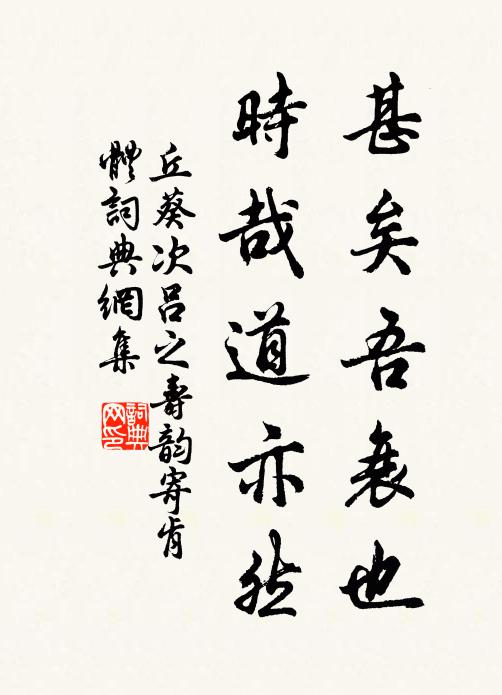 甚矣吾衰也
時哉道亦然
丘葵次呂之壽韵寄肯
體詞典網集
詞典
网印